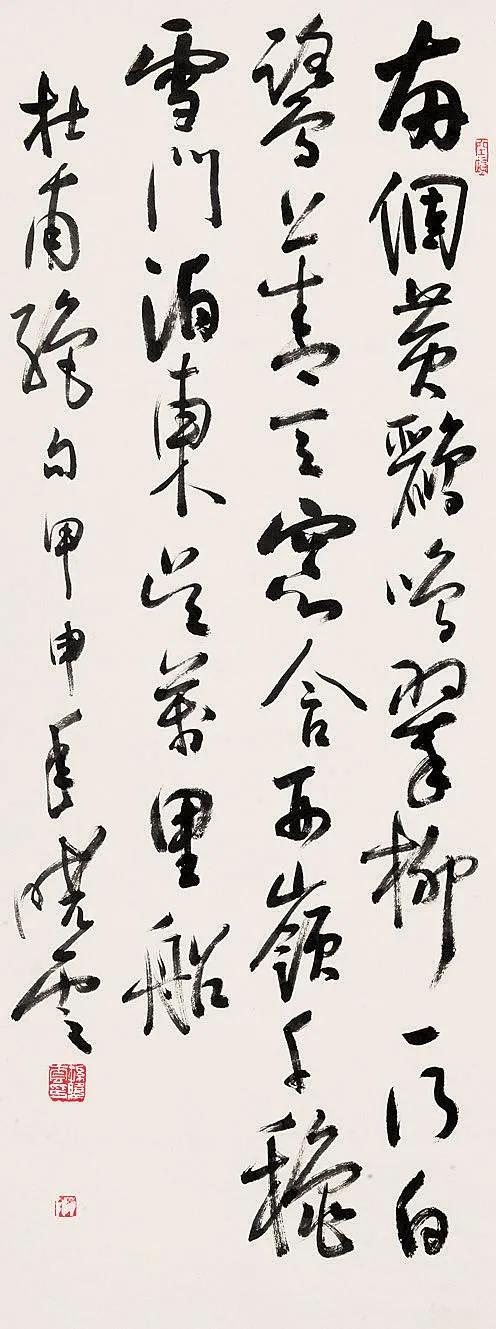 兩個黃鸝鳴翠柳一行白
鷺上青天窗含西嶺千穐
雪門泊東吳萬里船
杜甫絕句甲申年曉雲
孫曉雲印